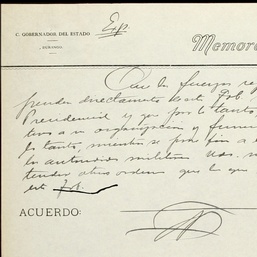 C. GOBERNADOR DEL ESTADO
DURANGO.
Memora
Que las fuerzas re
pendan directamente de este Gob
Presidencial y que por lo tanto
tivo a su organizacion y funci
lo tanto, mientras se pone fin a
las autoridades militares Uds. n
tender otras ordenes que las que
este Gob.
ACUERDO: